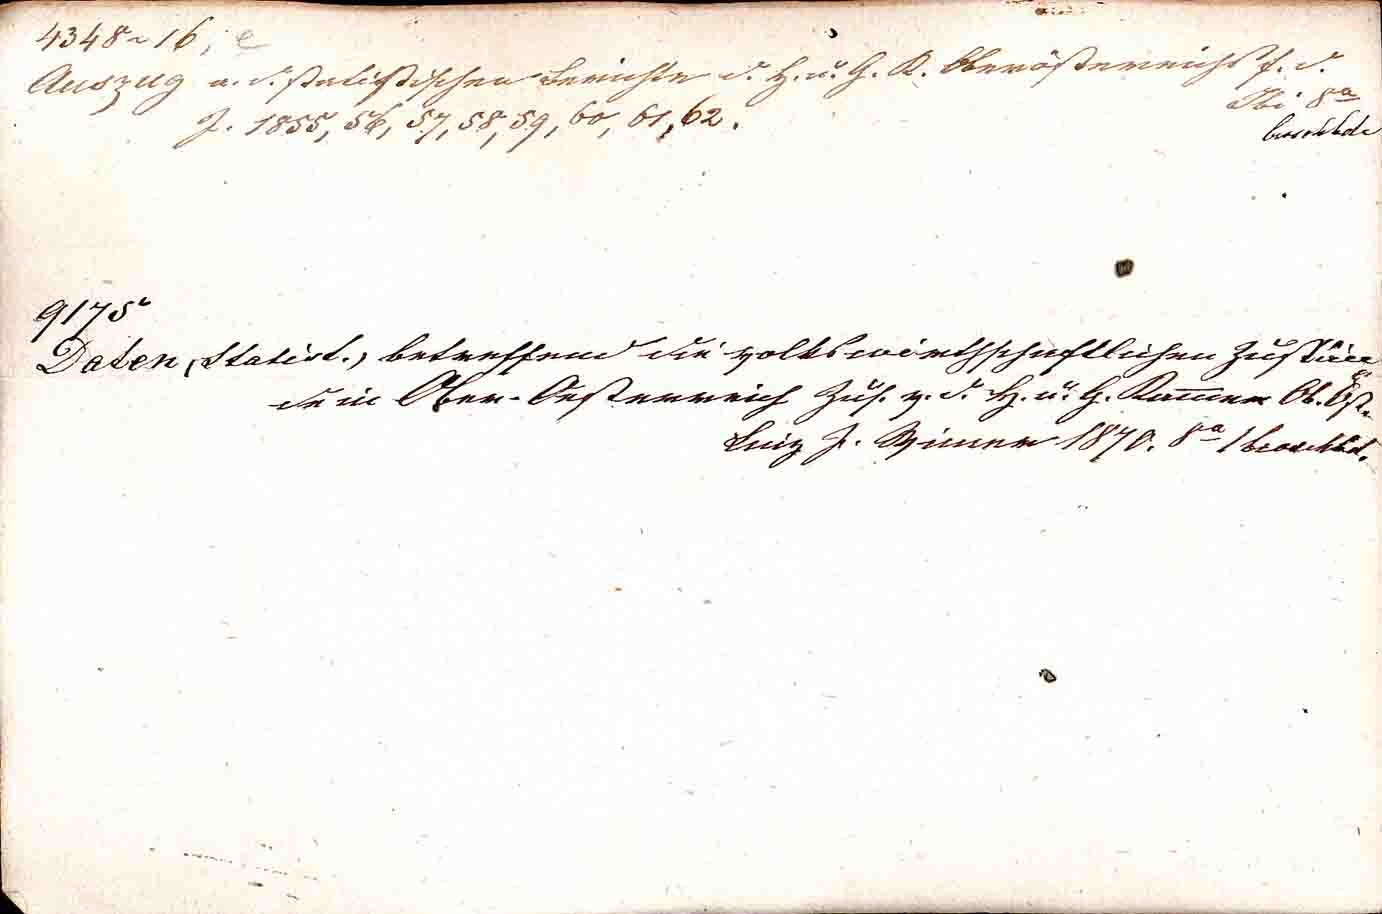 4348-16, e
Auszug a. d. statistischen Berichte d. H. u. G. K. Oberösterreichs f. d.
J. 1855, 56, 57, 58, 59, 60, 61, 62.
8ᵃ
9175
Daten, (statist.,) betreffend die volkswirthschaftlichen Zustän
de in Ober-Oesterreich Zus. v. d. H. u. G. Kam̅er Ob. Öst.
Linz J. Wimmer 1870. 8ᵃ